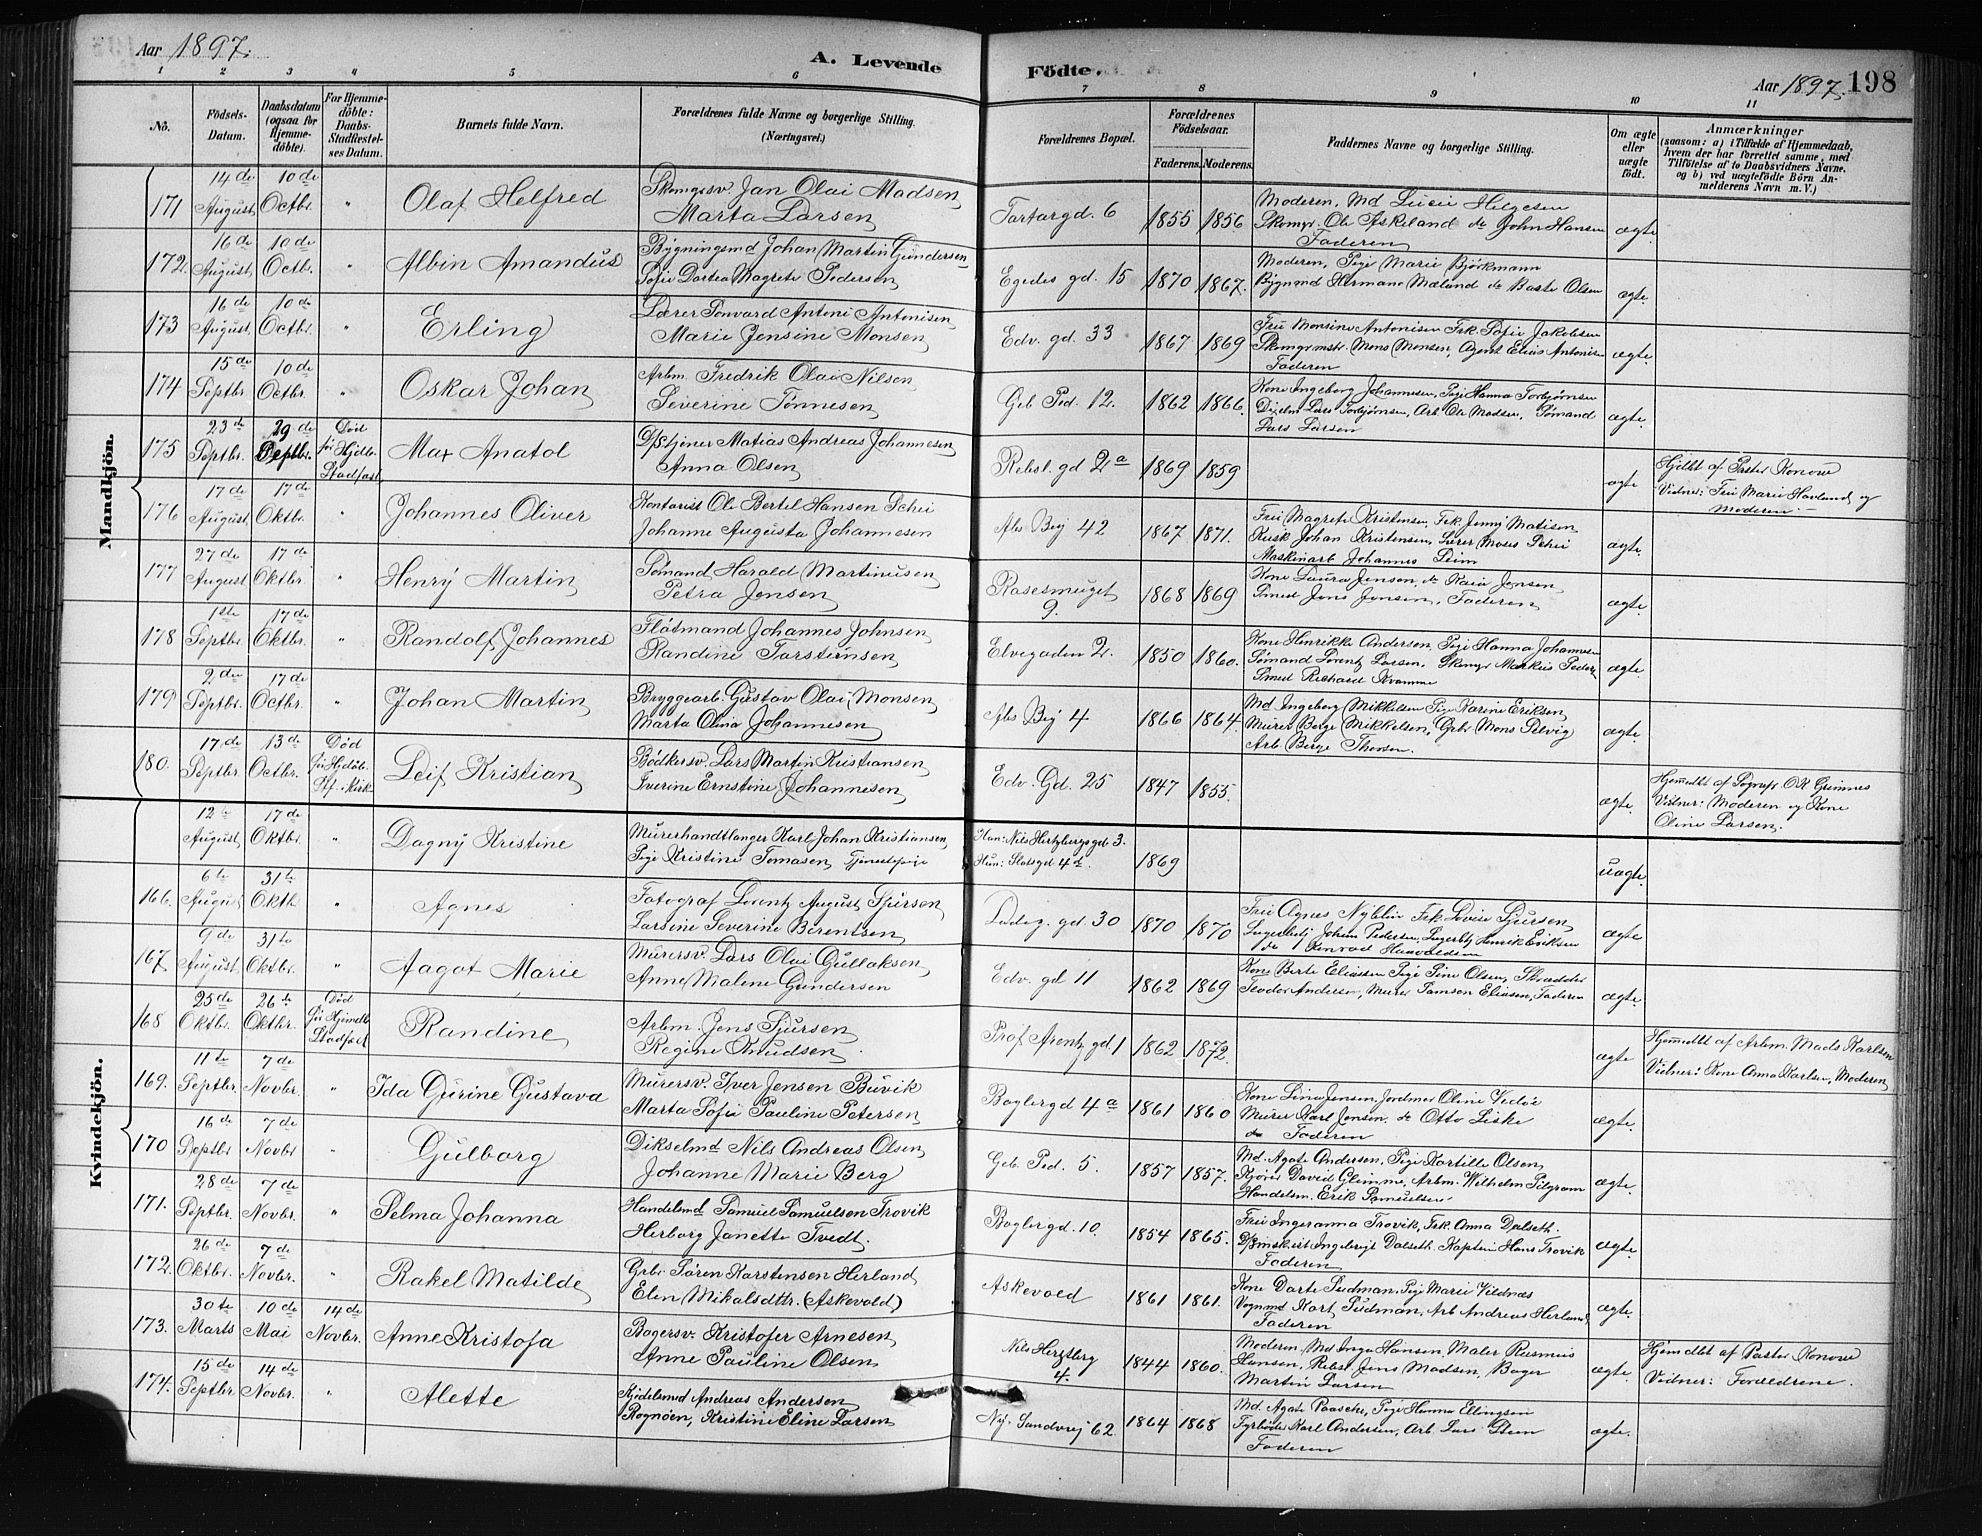 Aar 1897.
A. Levende Födte.
Aar 1897. 198
1 2 3 4 5 6 7 8 9 10 11
No.
Födsels-Datum.
Daabsdatum (ogsaa for Hjemme-döbte).
For Hjemme-döbte: Daabs-Stadfæstel-ses Datum.
Barnets fulde Navn.
Forældrenes fulde Navne og borgerlige Stilling. (Næringsvei.)
Forældrenes Bopæl.
Forældrenes Födselsaar.
Faderens. Moderens.
Faddernes Navne og borgerlige Stilling.
Om ægte eller uægte födt.
Anmærkninger (saasom: a) i Tilfælde af Hjemmedaab, hvem der har forrettet samme, med Tilföielse af to Daabsvidners Navne, og b) ved uægtefödte Börn An-melderens Navn m. V.)
Mandkjön.
171 14de August 10de Octbr. " Olaf Helfred Skomgrsv. Jan Olai Madsen, Marta Larsen Tartargd. 6 1855 1856 Moderen, Md Lusii Helgesen
Skomgr. Ole Askeland do John Hansen
Faderen ægte.
172. 16de August 10de Octb. " Albin Amandus Bygningsmd Johan Martin Gundersen
Sofie Dortea Magrete Pedersen Egedes gd. 15 1870 1867. Moderen, Pige Marie Björkmann
Bygnmd Hermann Mæland do Baste Olsen ægte.
173 16de August 10de Octbr. " Erling Lærer Tonvard Antoni Antonisen
Marie Jensine Monsen Edv. gd. 33 1867 1869 Fru Monsine Antonisen Frk. Sofie Jakobsen
Skomgrmstr. Mons Monsen, Agent Elias Antonisen
Faderen ægte.
174 15de Septbr 10de Octbr. " Oskar Johan Arbm. Fredrik Olai Nilsen
Severine Tönnesen Geb Ped. 12. 1862 1866. Kone Ingeborg Johannesen, Pige Hanna Torbjörnsen
Lars Torbjörnsen, Arb Ole Madsen, Sömand
Lars Larsen ægte.
175 23de Septbr. 29de Septbr. Död för Hjdb. Stadfæst. Max Anatol D/stjener Matias Andreas Johannesen
Anna Olsen Rebsl. gd 2a 1869 1859 ægte Hjdbt af Pastor Konow
Vidner: Fru Marie Havland, og
Moderen.
176 17de August. 17de Oktbr. " Johannes Oliver Kontorist Ole Bertel Hansen Schei
Johanne Augusta Johannesen Abs Bej 42 1867 1871. Fru Magrete Kristensen, Frk. Jenny Matisen
Kusk Johan Kristensen, Lærer Moses Schei
Maskinarb Johannes ægte.
177 27de August 17de Oktbr. " Henry Martin Sömand Harald Martinusen
Petra Jensen Rasesmuget 9. 1868 1869 Kone Laura Jensen, do Kaia Jensen
Smed Jens Jensen, Faderen ægte.
178 1ste Septbr. 17de Oktbr. " Randolf Johannes Flötmand Johannes Johnsen
Randine Torstensen Elvegaden 2. 1850 1860. Kone Henrikke Andersen, Pige Hanna Johannesen
Sömand Lorentz Larsen, Skomgr Markus Peders.
Smed Richard Kvamme ægte.
179 2den Septbr. 17de Octbr. " Johan Martin Bryggearb. Gustav Olai Monsen
Marta Olina Johannesen Abs Bej 4 1866 1864. Md. Ingeborg Mikkelsen Pige Karine Eriksen
Murer Berge Mikkelsen, Grbr Mons Selvig
Arb. Berge Thorsen. ægte.
180. 17de Septbr. 13de Octbr. Död för Hjdöb. Stf. i Kirk Leif Kristian Bödkersv. Lars Martin Kristiansen
Iverine Ernstine Johannesen Edv. Gd. 25 1847 1855. ægte. Hjemmedbt af Sognepr. O K Grimnes
Vidner: Moderen og Kone
Oline Larsen.
Kvindekjön.
12te August 17de Oktbr. " Dagny Kristine Murerhandtlanger Karl Johan Kristiansen
Pige Kristine Tomasen, Tjenestepige Han: Nils Hertzbergs gd 3.
Hun: Slotsgd 4d. 1869 uægte.
166. 6te August 31te Oktb " Agnes Fotograf Lorentz August Sjursen
Larsine Severine Berentsen Ladeg. gd 30 1870 1870 Frue Agnes Nyblin Frk. Lovise Sjursen,
Lagerbetj Johan Pedersen, Lagerbtj Henrik Eriksen
do Konrad ægte
167 9de August 31te Oktbr. " Aagot Marie Murersv. Lars Olai Gullaksen
Anne Malene Gundersen Edv. gd 11 1862 1869 Kone Berte Eliassen Pige Sine Olsen, Skrædder
Teodor Andersen, Murer Samson Eliasen, Faderen ægte.
168 25de Oktbr. 26te Oktbr. Död för Hjemdb. Stadfæst Randine Arbm. Jens Sjursen
Regine Knudsen. Prof Arentz gd. 1 1862 1872. ægte Hjemmdbt af Arbm. Mads Karlsen
Vidner: Kone Anna Karlsen, Moderen
169. 11te Septbr. 7de Novbr. " Ida Gurine Gustava Murersv. Iver Jensen Buvik
Marta Sofie Pauline Petersen Baglergd 4a 1861 1860 Kone Lina Jensen, Jordmor Oline Vedöe
Murer Karl Jensen do Otto Liske
do Faderen ægte.
170 16de Septbr 7de Novbr " Gulborg Dikselmd Nils Andreas Olsen
Johanne Marie Berg Geb. Ped. 5. 1857 1857. Md. Agate Andersen, Pige Kartille Olsen
Kjörer David Glemme, Arbm. Wilhelm Pilgram
Handelsm. Erik Samuelsen ægte.
171. 28de Septbr. 7de Novbr. " Selma Johanna Handelsmd Samuel Samuelsen Trovik
Herborg Janette Tvedt. Baglergd. 10. 1854 1865. Fru Ingeranna Trovik, Frk. Anna Dalseth.
D/smskist Ingebrigt Dalseth, Kaptein Hans Trovik
Faderen ægte.
172. 26de Oktbr. 7de Novbr. " Rakel Matilde Grbr Sören Karstensen Herland
Elen Mikalsdttr. (Askevold) Askevold 1861 1861. Kone Dorte Sudman, Pige Marie Vildnæs
Vognmd Kort Sudman, Arb Andreas Herland,
Faderen ægte.
173. 30te Marts 10de Mai 14de Novbr. Anne Kristofa Bagersv. Kristofer Arnesen
Anne Pauline Olsen Nils Hertzberg 4. 1844 1860. Moderen, Md Inga Hansen, Maler Rasmus
Hansen, Rebsl. Jens Madsen, Bager
Martin Larsen ægte. Hjemdbt af Pastor Konow
Vidner: Forældrene.
174. 15de Septbr. 14de Novbr. " Alette Kjedelsmd Andreas Andersen
Rognöen, Kristine Eline Larsen Ny. Sandvej 62 1864 1868 Md. Agate Paasche, Pige Hanna Ellingsen
Fyrböder Karl Andersen, Arb Lars Steen
Faderen ægte.